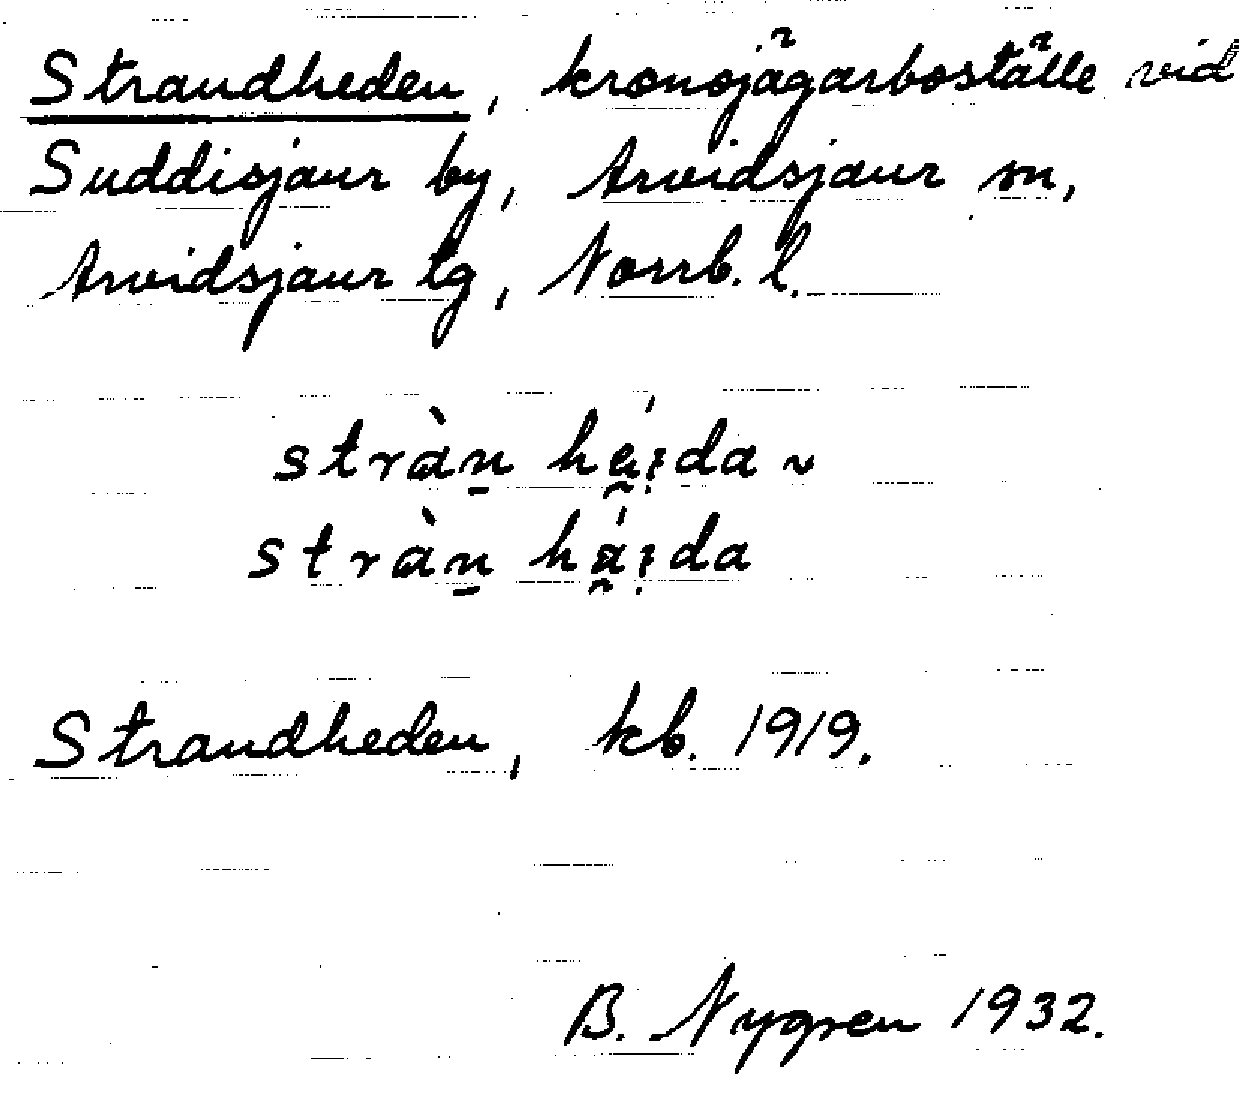 Strandheden, kronojägarboställe vid
Suddisjaur by, Arvidsjaur sn,
Arvidsjaur tg, Norrb. l.
stràn̠ hḁ̰́i̯da ~
stràn̠ hä̰́i̯da
Strandheden, kb. 1919.
B. Nygren 1932.